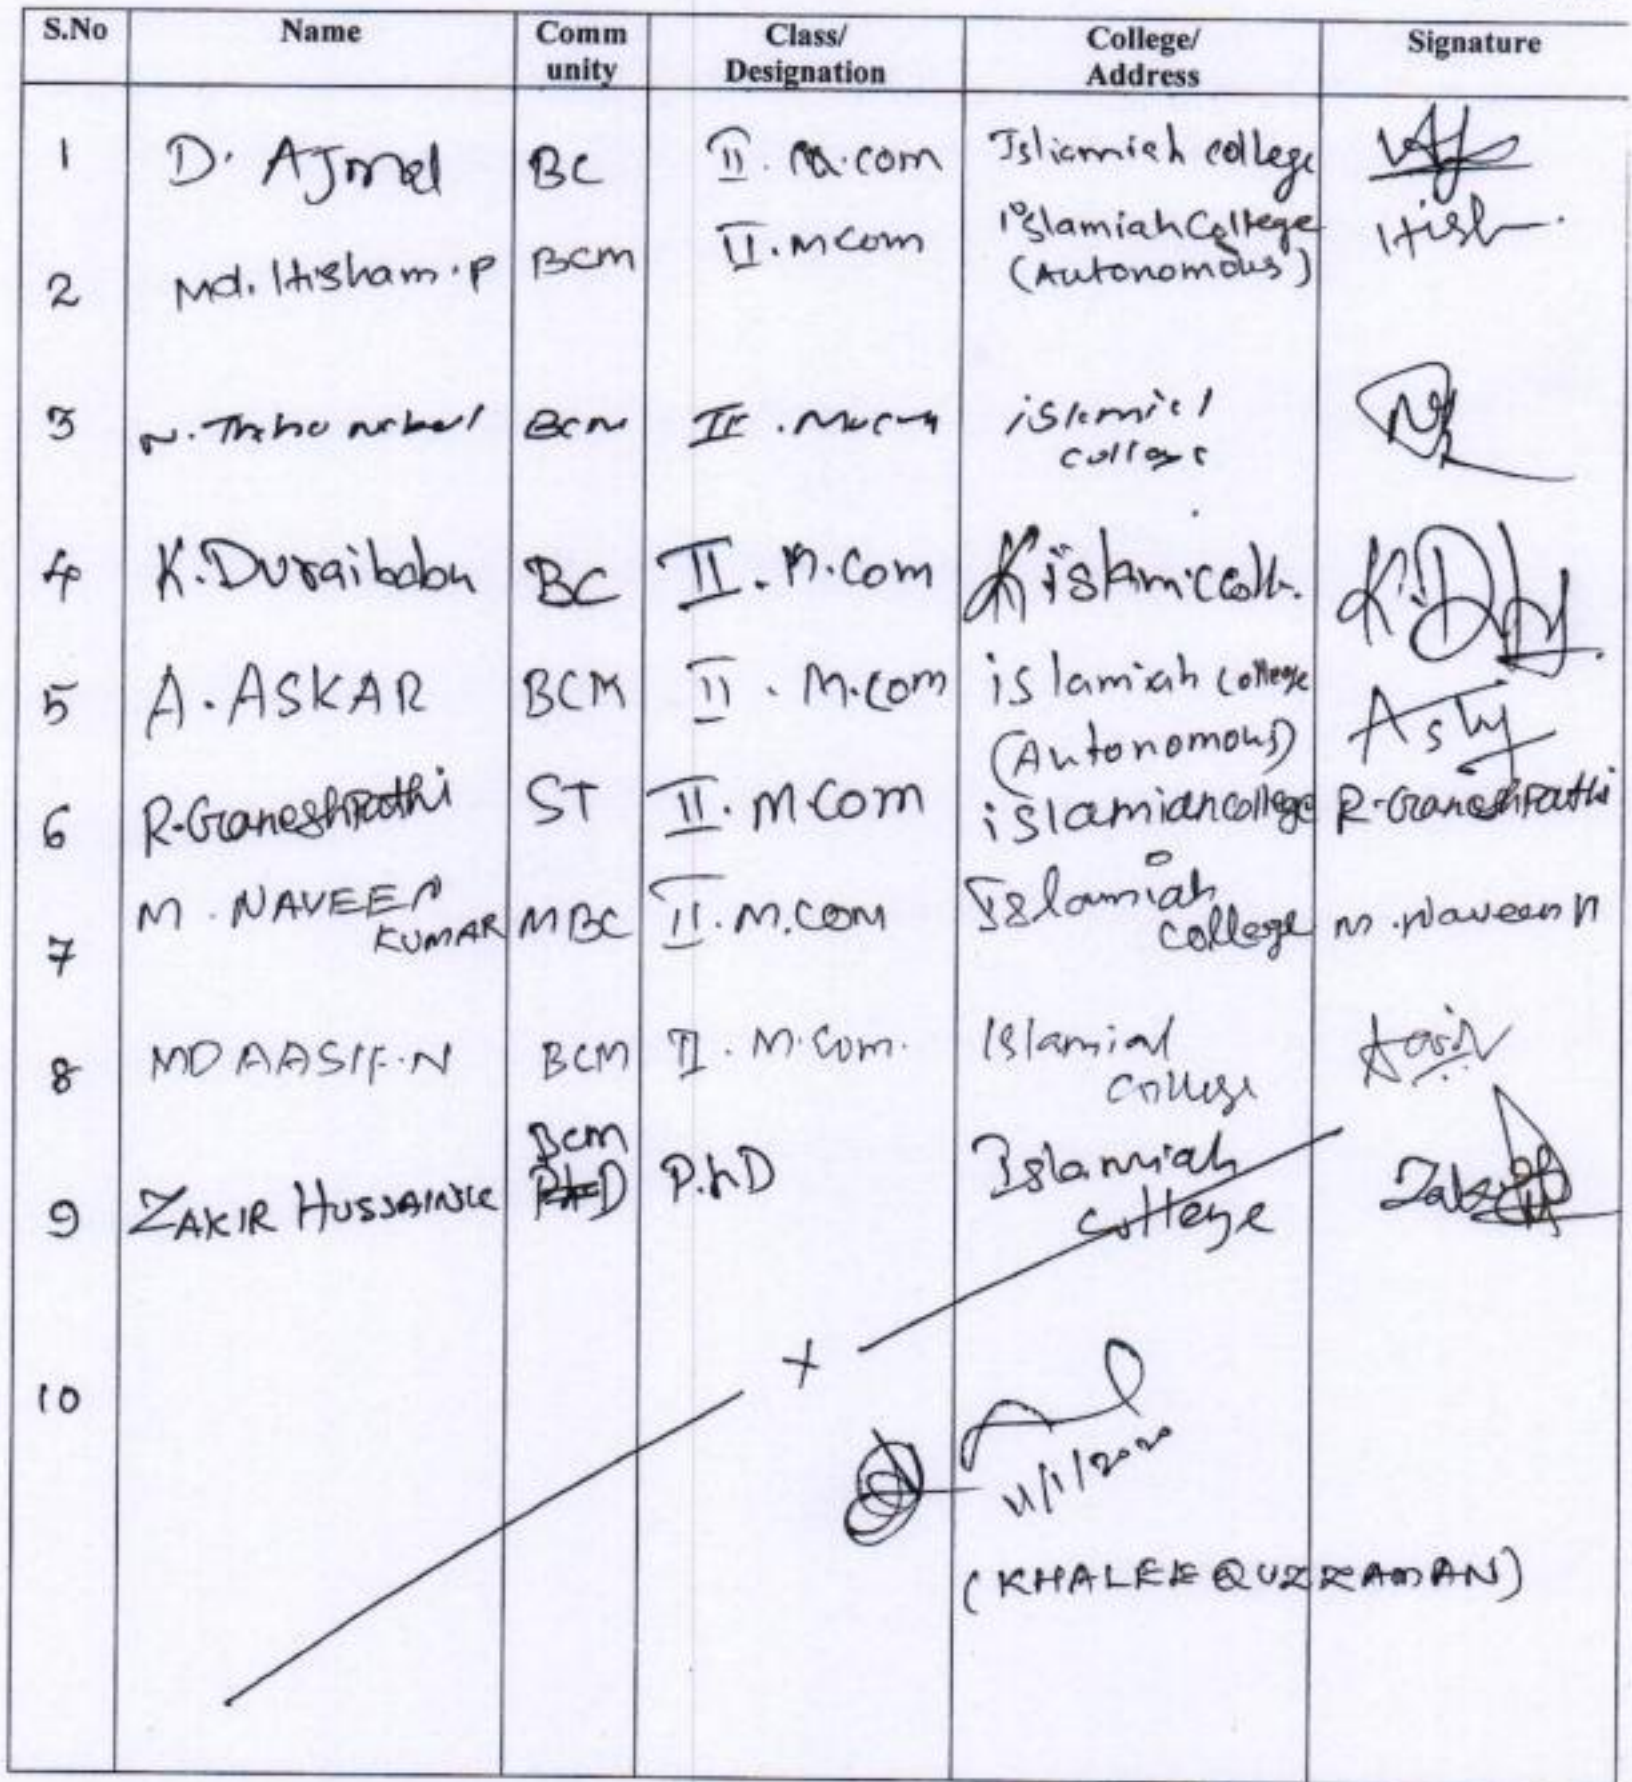 S.No Name Comm unity Class/ Designation College/ Address Signature
1 D. AJmal BC II. M.com Isliamiah college
2 Md. Hisham.P BCM II. MCom islamiah College (Autonomous) Hish
3 BCM II. islamic college
4 K. Duraibabu BC II. M.Com islamic K.D
5 A. ASKAR BCM II. M.com islamiah college (Autonomous)
6 R.GaneshPathi ST II. M.Com islamiah college R.GaneshPathi
7 M. NAVEEN KUMAR MBC II. M.COM Islamiah College M. Naveen
8 MD AASIF.N BCM II. M.Com. Islamiah College
9 ZAKIR BCM PhD P.hD Islamiah college
10
x
11/1/2020
(KHALEEQUZZAMAN)